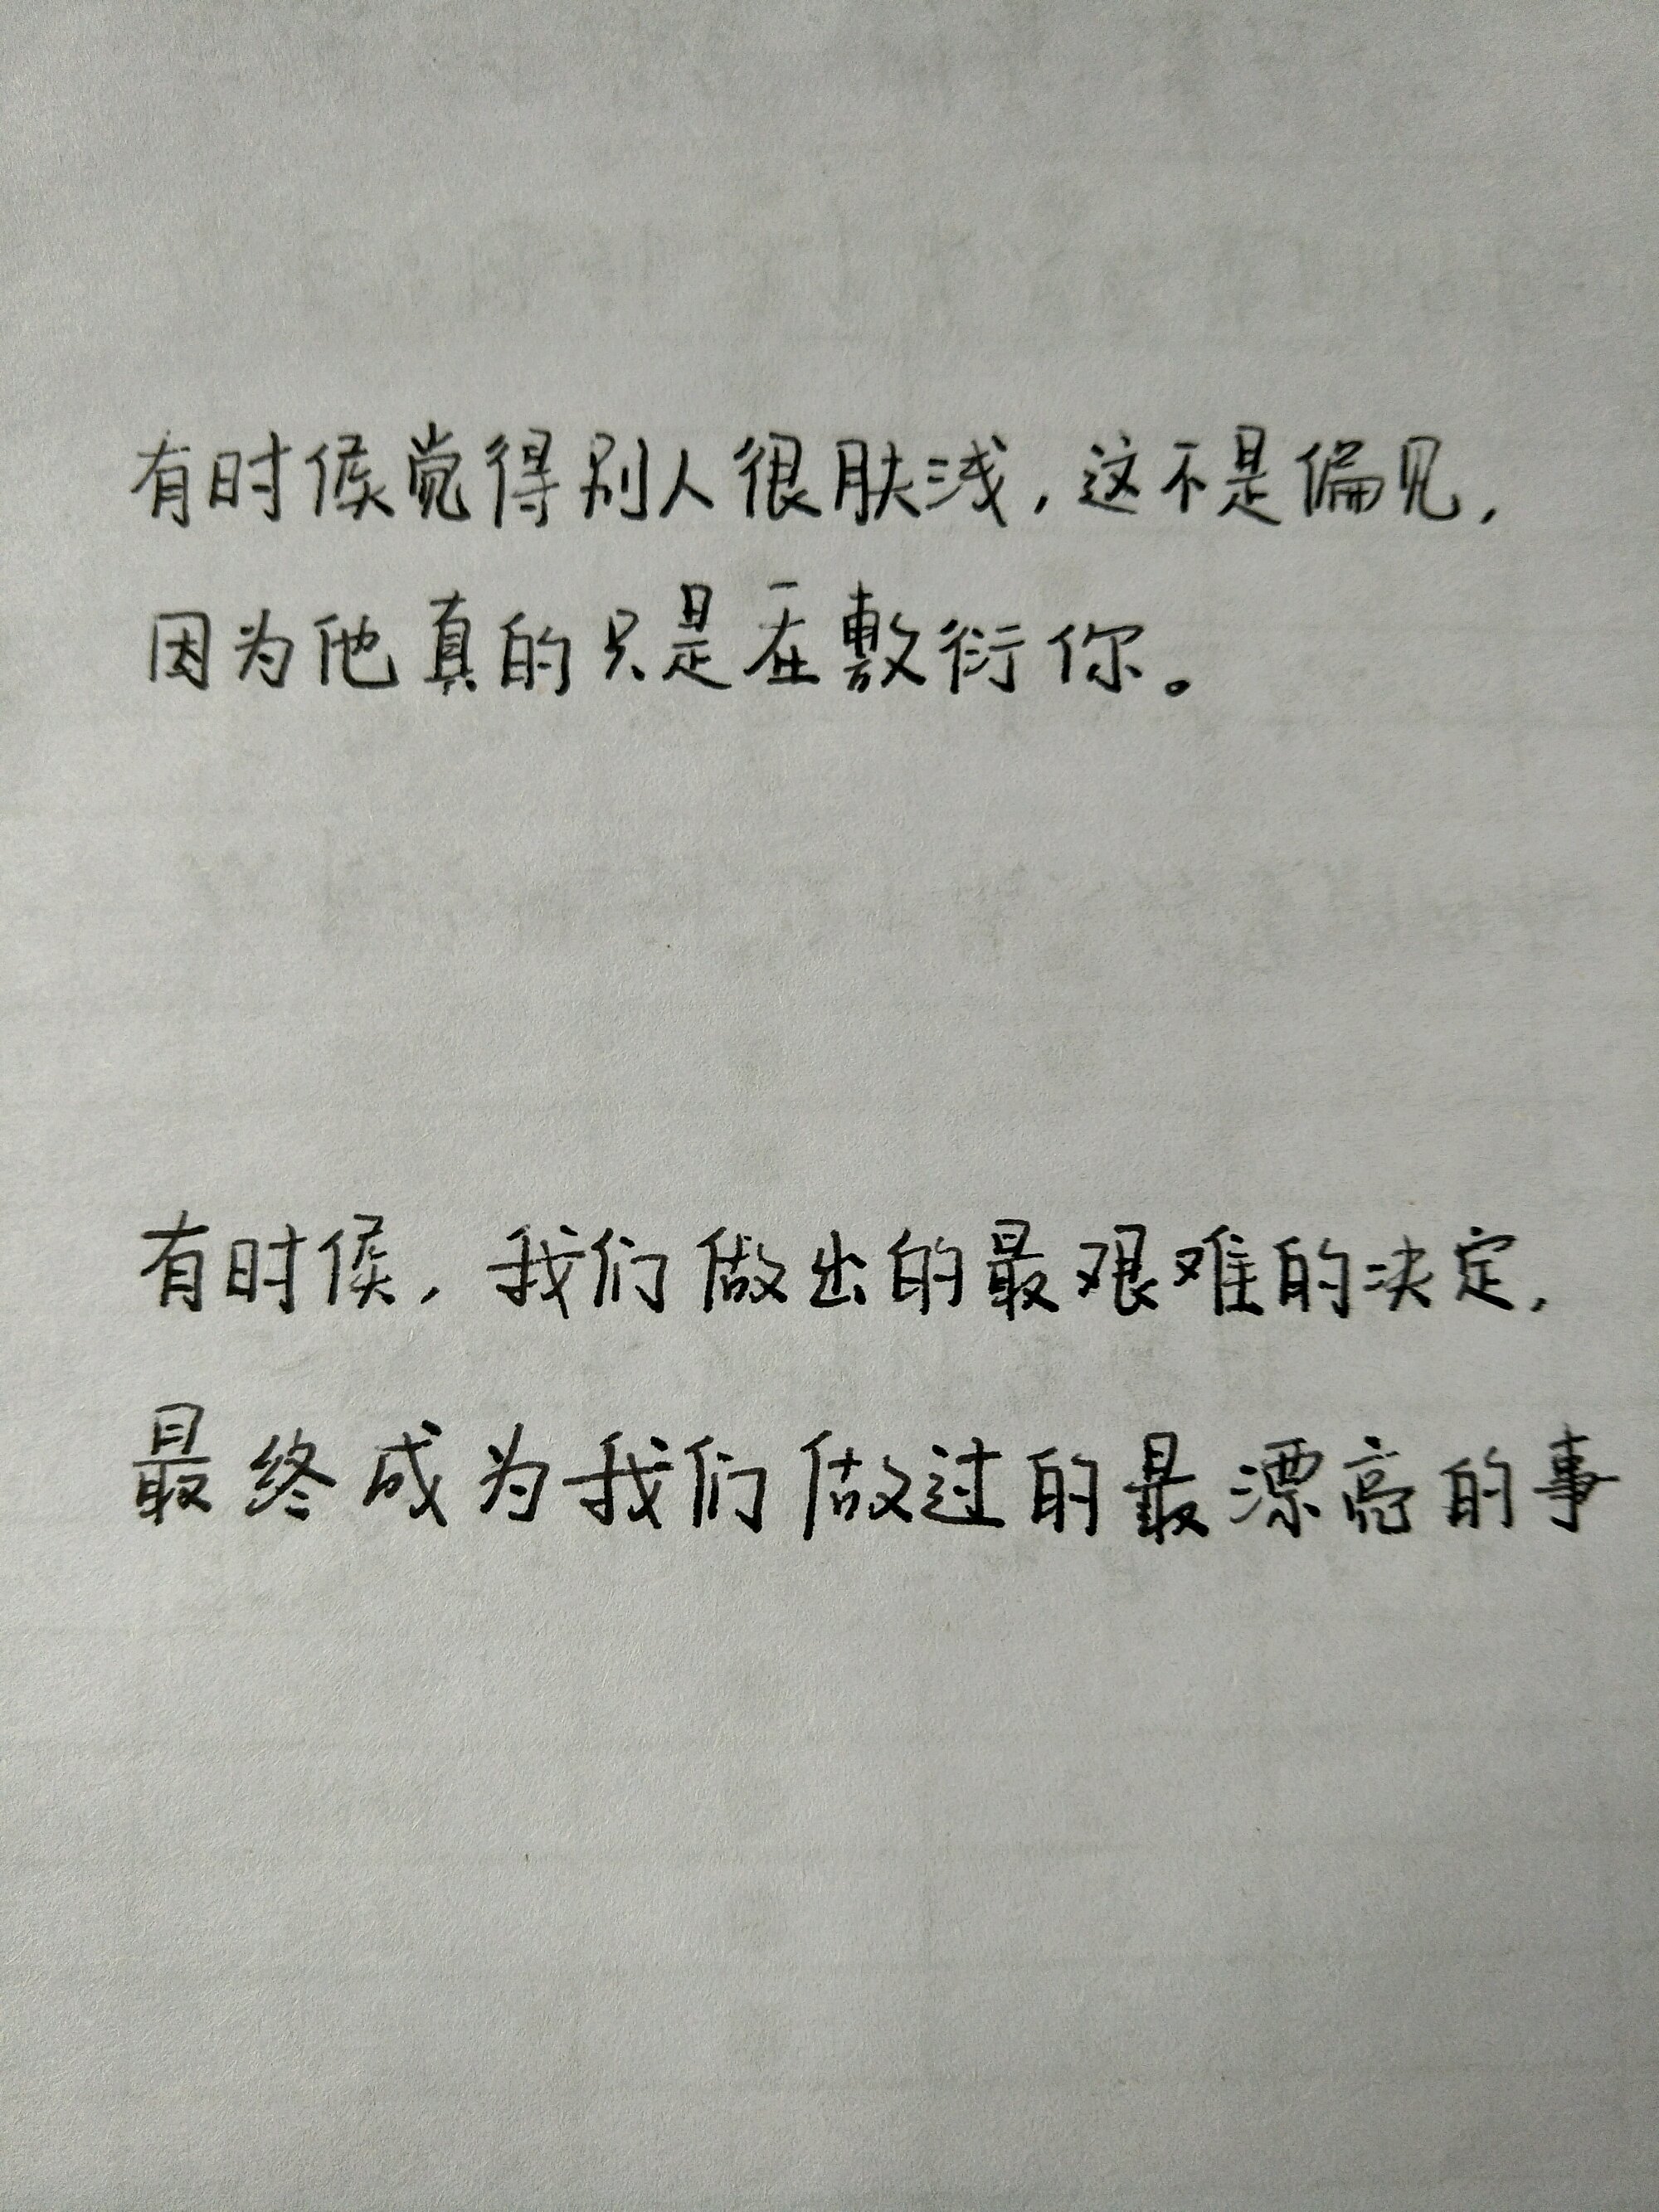 有时候觉得别人很肤浅，这不是偏见，
因为他真的只是在敷衍你。
有时候，我们做出的最艰难的决定，
最终成为我们做过的最漂亮的事